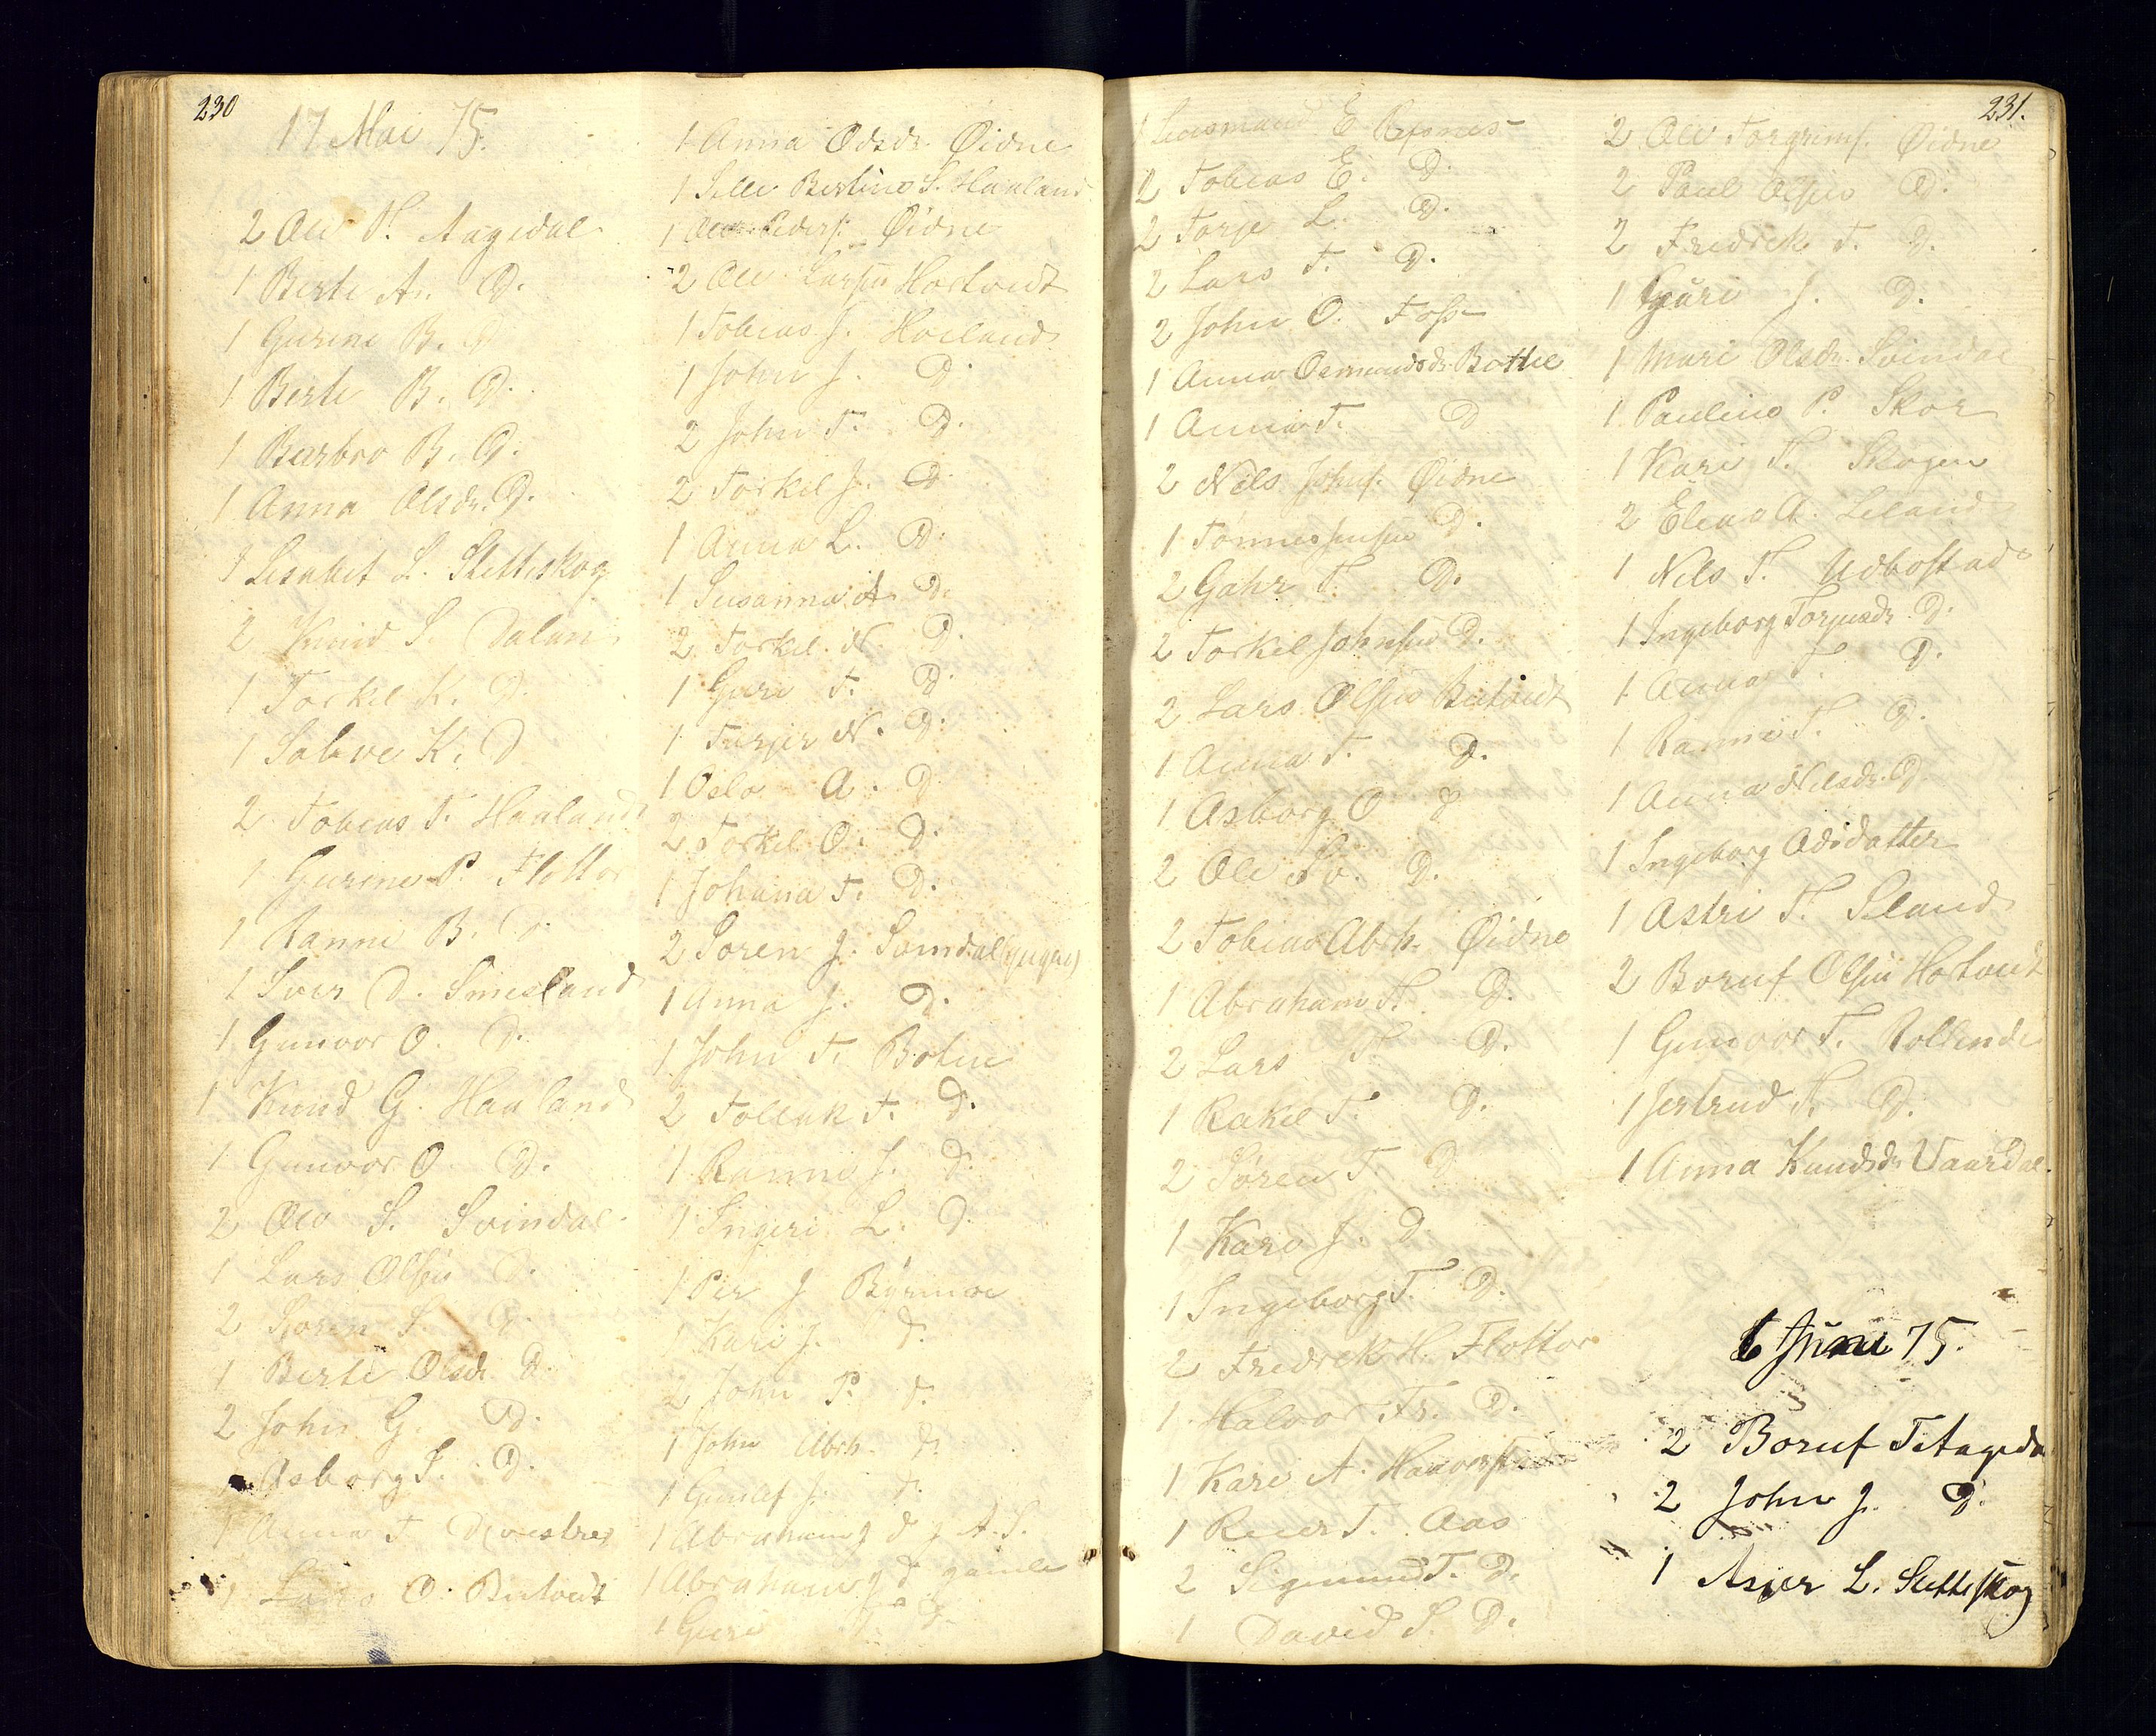 230
17 Mai 75.
2 Ole N. Aagedal
1 Berte An. D.
1 Gurine B. D
1 Berte B. D.
1 Barbro B. D.
1 Anna Olsdr. D.
1 Lisabet L. Slettiskog
2 Knud S. Dalane
1 Torkel K. D.
1 Salve K. D
2 Tobias T. Haaland
1 Gurine P. Flottor
1 Ranni B. D.
1 Siver D. Smesland
1 Gunvor O. D.
1 Knud G. Haaland
1 Gunvor O. D.
2 Ole S. Svindal
1 Lars Olsen D.
2 Søren S. D.
1 Berte Olsdr. D.
2 John G. D.
1 Asborg S. D.
1 Anna T. D. vestre
1 Lars O. Birtvedt
1 Anna Odsdr. Øidne
1 Sille Bertine S. Haaland
1 Pederf. Øidne
2 Ole Larsen Hortvedt
1 Tobias J. Hoeland
1 John J. D.
2 John T. D.
2 Torkel J. D
1 Anna L. D.
1 Susanna A. D.
2 Torkel N. D.
1 Guri T. D.
1 Terjer N. D.
1 Oslo A. D.
2 Torkel O. D.
1 Johana T. D.
2 Soren J. Svindal
1 Anna J. D.
1 John T. Boten
2 Tollak T. D.
1 Ranni J. D.
1 Ingeri L. D.
1 Per J Byrmoe
1 Kari J. D.
2 John P. D.
1 John Abrh. D.
1 Gunlef J. D.
1 Abraham J D A. S.
1 Abraham J D gamle
1 Guri D.
231.
1 E Refsnes
2 Tobias E. D.
2 Torje L. D.
2 Lars T. D.
2 John O. Foss
1 Anna Osmundsdr. Bottel
1 Anna T. D
2 Nils Johnf. Øidne
1 Tønnes Jensen D.
2 Gahr T. D.
2 Torkel Johnsen D.
2 Lars Olsen Birtvedt
1 Anna T. D.
1 Asborg O D
2 Ole Sv. D.
2 Tobias Abrh. Øidne
1 Abraham T. D.
2 Lars T. D.
1 Rakel T. D.
2 Søren T. D
1 Kari J. D
1 Ingeborg T. D.
2 Fredrek H. Flottor
1 Halvor Fr. D.
1 Kari A.
1 Reier T. Aas
2 Sigmund T. D.
1 David S. D.
2 Ole Torgrimf. Øidne
2 Paul Olsen D.
2 Fredrek T. D.
1 Guri J. D.
1 Mari Olsdr. Svindal
1 Pauline P. Skor
1 Kari T. Skogen
2 Elias A. Leland
1 Nils T. Udbostad
1 Ingeborg Torjusdr. D.
1 Anna T. D.
1 Ranni T. D.
1 Anna Nilsdr. D.
1 Ingeborg Adsdatter
1 Astri T. Seland
2 Boruf Olsen Hortvedt
1 Gunvor T. Rollend
1 Jertrud T. D.
1 Anna Knudsdr. Vaardal.
6 Juni 75.
2 Boruf T. Aageda
2 John J. D.
1 Asjer L. Slettiskog